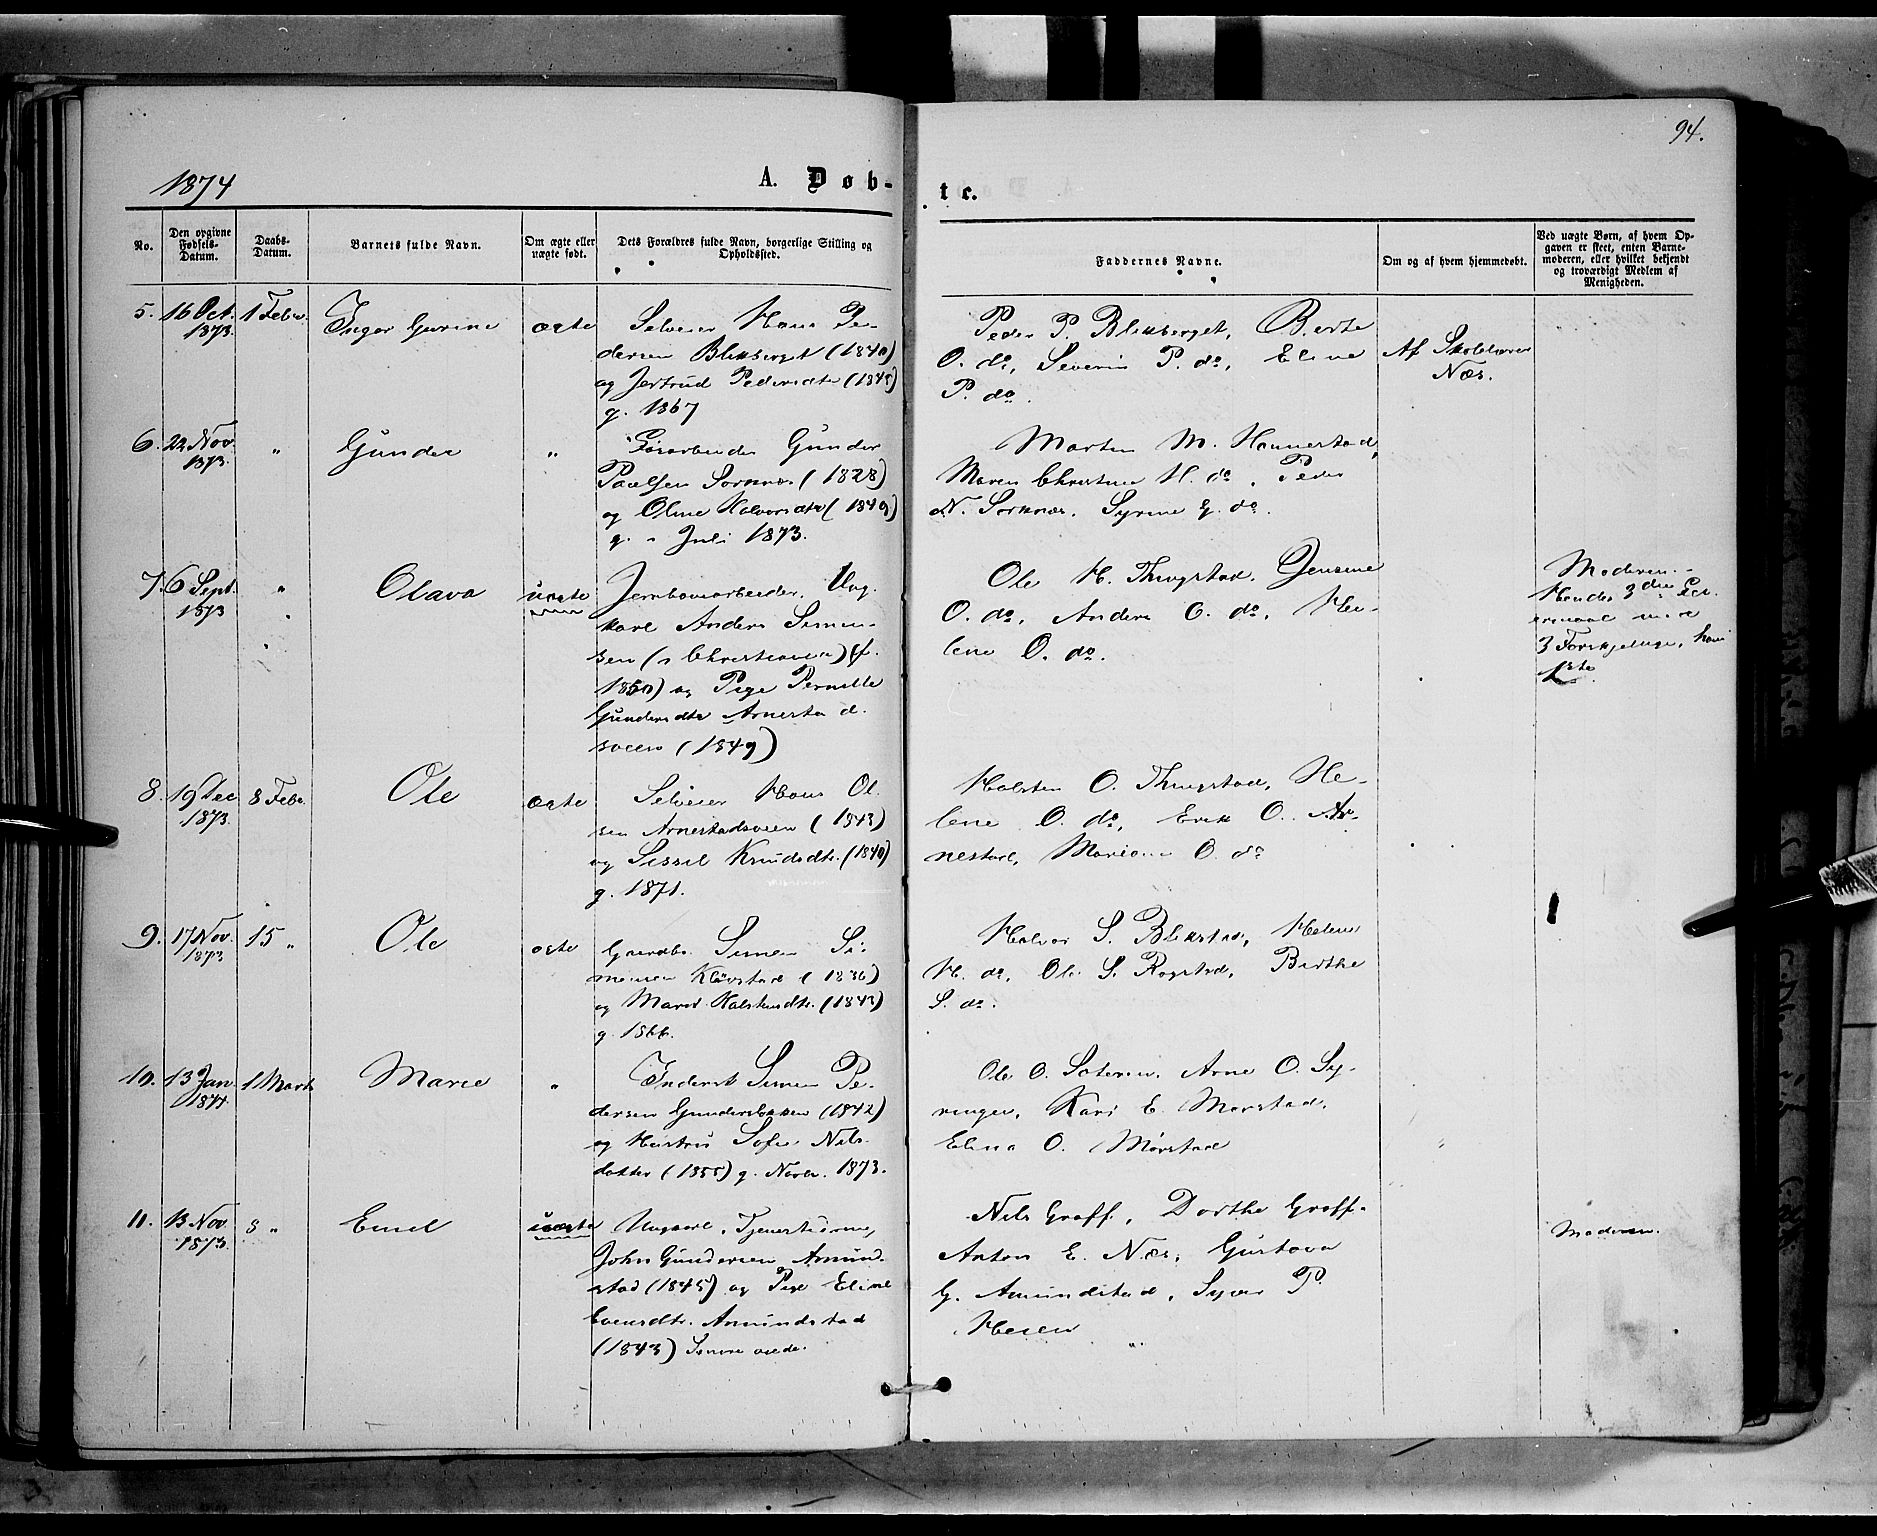 94.
1874
A. Døb-
te.
No.
Den opgivne Fødsels-Datum.
Daabs-Datum.
Barnets fulde Navn.
Om ægte eller uægte født.
Dets Forældres fulde Navn, borgerlige Stilling og Opholdssted.
Faddernes Navne.
Om og af hvem hjemmedøbt.
Ved uægte Børn, af hvem Opgaven er skeet, enten Barnemoderen, eller hvilket bekjendt og troværdigt Medlem af Menigheden.
5. 16 Oct. 1873. 1 Febr. Inger Gurine ægte
Selveier Hans Pe-
dersen Blikberget (1840)
og Jertrud Pedersdtr (1845)
g. 1867
Peder P. Blikberget, Berte
O. do, Severin P. do, Eline
P. do.
Af Skolelærer
Næs.
6. 22 Nov. 1873. " Gunder "
Gunder
Paulsen Sorknæs (1828)
og Oline Halvorsdtr (1849)
g. i Juli 1873.
Marten M. Hannestad,
Maren Christine H. do, Peder
N. Sorknæs, Syrine G. do.
7. 6 Sept. 1873 " Olava uægte
Jernbanearbeider, Ung-
karl Anders Simen-
sen (i Christiania) (f.
1850) og Pige Pernille
Gundersdtr Arnestad-
sveen (1849)
Ole H. Thingstad, Jensine
O. do, Anders O. do, He-
lene O. do.
Moderen.
Hendes 3die Lei-
ermaal med
3 Forskjellige, hans
1ste.
8. 19 Dec 1873. 8 Febr. Ole ægte
Selveier Hans Ol-
sen Arnestadsveen (1843)
og Sissil Knudsdtr. (1840)
g. 1871.
Halsten O. Thingstad, He-
lene O. do, Erik O. Ar-
nestad, Mariane O. do
9. 17 Nov. 1873 15 " Ole ægte
Gaardbr. Simen Si-
mensen Kløvstad (1836)
og Marit Halstensdtr. (1843)
g. 1866.
Halvor S. Blikstad, Helene
H. do, Ole S. Rogstad, Birthe
S. do.
10. 13 Jan. 1874. 1 Marts Marie "
Inderst Simen Pe-
dersen Gundersbakken (1842)
og Hustru Sofie Nils-
datter (1855) g. Novbr. 1873.
Ole O. Sæteren, Arne O. Sy-
ringen, Kari E. Mørstad,
Elina O. Mørstad
11. 13 Nov. 1873. 8 " Emil uægte
Ungkarl, Tjenestedreng,
John Gundersen Amund-
stad (1845) og Pige Eline
Evensdtr. Amundstad
(1843)
Nils Graff, Dorthe Graff,
Anton E. Næs, Gustava
G. Amundstad, Syver P.
Heien
Moderen.